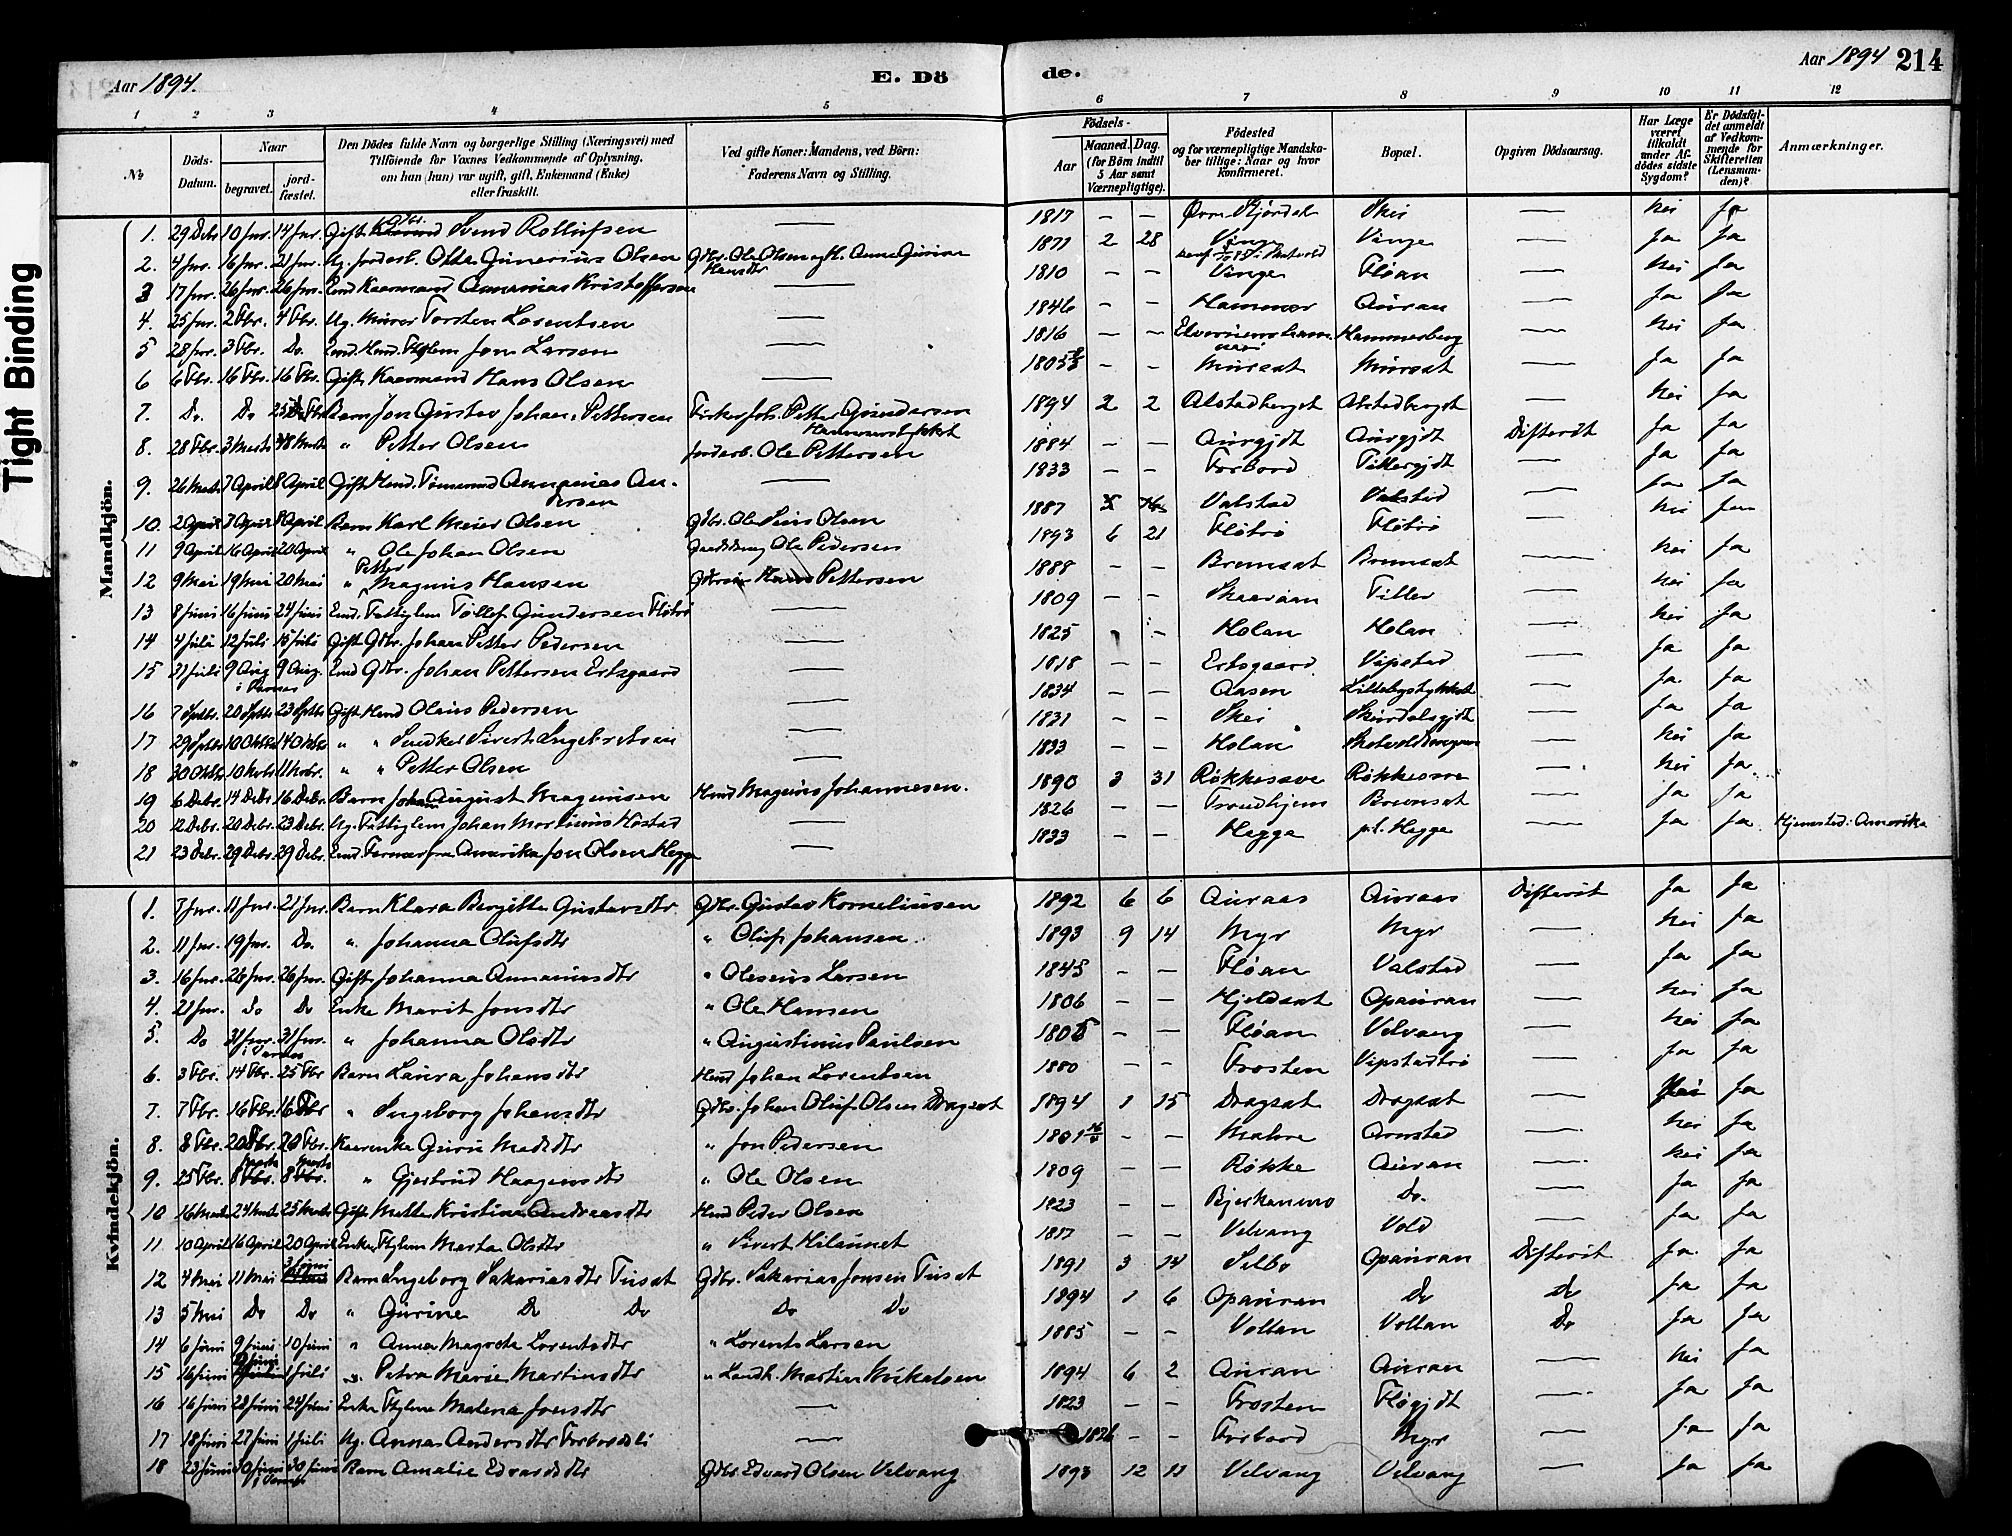 Tight Binding
Aar 1894.
E. Dö
de.
Aar 1894
214
1 2 3 4 5 6 7 8 9 10 11 12
№
Döds-Datum.
Naar
begravet.
jord-fæstet.
Den Dödes fulde Navn og borgerlige Stilling (Næringsvei) med
Tilföiende for Voxnes Vedkommende af Oplysning,
om han (hun) var ugift, gift, Enkemand (Enke)
eller fraskilt.
Ved gifte Koner: Mandens, ved Börn:
Faderens Navn og Stilling.
Födsels-
Aar
Maaned. Dag.
(for Börn indtil
5 Aar samt
Værnepligtige).
Födested
og for værnepligtige Mandska-
ber tillige: Naar og hvor
konfirmeret.
Bopæl.
Opgiven Dödsaarsag.
Har Læge
været
tilkaldt
under Af-
dödes sidste
Sygdom?
Er Dödsfal-
det anmeldt
af Vedkom-
mende for
Skifteretten
(Lensman-
den)?
Anmærkninger.
Mandkjön.
1. 29 Debr 10 Jnr. 14 Jnr. Gift Svend Rollufsen — 1817 — — Øvre Stjørdal Skei — Nei Ja
2. 4 Jnr. 16 Jnr. 21 Jnr. Ug. Jorderb. Olde Gunerius Olsen Gbr. Ole Olsen og H. Anne Gurine Hansdtr 1871 2 28 Vinge Vinge — Ja Ja
3 17 Jnr. 26 Jnr. 26 Jnr. Enk Kaarmand Ananias Kristoffersen — 1810 — — Vinge Fløan — Nei Ja
4. 25 Jnr. 2 Fbr. 4 Fbr. Ug. Murer Torsten Lorentsen — 1846 — — Hammer Auran — Ja Ja
5 28 Jnr. 3 Fbr. Do. Enk. Hmd. Fttglem Jon Larsen — 1816 — — Hammerberg — Nei Ja
6 6 Fbr. 16 Fbr. 16 Fbr. Gift Kaarmand Hans Olsen — 1805 — — Mursat Mursat — Ja Ja
7. Do. Do Barn Jon Gustav Johan. Pettersen Fisker Joh. Petter Gundersen 1894 2 2 Alstadberget Alstadberget — Nei Ja
8. 28 Fbr. 3 Marts " Petter Olsen Jorderb. Ole Pettersen 1884 — — Aurgjdt Aurgjdt Difterit Ja Ja
9. 26 Marts 7 April 8 April Gift Hmd. Tømmermd Annanias An-
dersen — 1833 — — Forbord Tillergjdt — Ja Ja
10. 2 April 7 April 8 April Barn Karl Meier Olsen Gbr. Ole Seius Olsen 1887 Valstad Valstad — Ja Ja
11 9 April 16 April 20 April " Ole Johan Olsen Ole Pedersen 1893 6 21 Fløtrø Fløtrø — Nei Ja
12 9 Mai 19 Mai 20 Mai " Petter Magnus Hansen Hans Pettersen 1888 — — Bremsat Bremsat — Nei Ja
13 8 Juni 16 Juni 24 Juni Enk. Fattiglem Tøllef Gundersen Fløtrø — 1809 — — Skaraan Tiller — Nei Ja
14 4 Juli 12 Juli 15 Juli Gift Gbr. Johan Petter Pedersen — 1825 — Holan Holan — Nei Ja
15 31 Juli 9 Aug 9 Aug. Enk Gbr. Johan Pettersen Ertsgaard — 1818 — — Ertsgaard Vipstad — Ja Ja
16 7 Septbr. 20 Septbr 23 Septbr Gift Hmd Olaus Pedersen — 1834 — — Aasen Lillebystykket — Ja. Ja
17 29 Septbr 10 Oktbr 14 Oktbr " " Snedker Sivert Ingebretsen — 1831 — — Skei Skurdalsgjdt — Ja Ja
18 30 Oktbr 10 Novbr 11 Novbr. " " Petter Olsen — 1833 — — Holan — Nei Ja
19 6 Debr. 14 Debr 16 Debr. Barn Johan August Magnusen Hmd Magnus Johannesen. 1890 3 31 Røkkesøve Røkkesøve — Nei Ja
20 12 Debr. 20 Debr. 23 Debr. Ug. Fattiglem Johan Martinus Hastad — 1826 — — Trondhjem Bremsat — Ja Ja
21 23 Debr. 29 Debr. 29 Debr. Enk. Farmer fra Amerika Jon Olsen Hegge — 1833 — — Hegge p.t. Hegge — Ja Ja Hjemsted: Amerika
Kvindekjön.
1. 7 Jnr. 11 Jnr. 21 Jnr. Barn Klara Bergitte Gustavsdtr. Gbr. Gustav Korneliusen 1892 6 6 Auraas Auraas Difterit Ja Ja
2. 11 Jnr. 19 Jnr. Do. " Johanna Olufsdtr " Oluf Johansen. 1893 9 14 Myr Myr — Nei Ja
3. 16 Jnr. 26 Jnr. 26 Jnr. Gift Johanna Annaniasdtr " Oleseus Larsen 1845 — — Fløan Valstad — Ja Ja
4. 21 Jnr. Do Do Enke Marit Jonsdtr " Ole Hansen 1806 — — Hjeldsat Opauran — Nei Ja
5. Do 31 Jnr. 31 Jnr. " Johanna Olsdtr " Augustinus Paulsen 1805 — — Fløan Velvang — Nei Ja
6. 3 Fbr. 14 Fbr. 25 Fbr Barn Laura Johansdtr Hmd Johan Lorentsen 1880 — — Frosten Vipstadtrø — Ja Ja
7. 7 Fbr. 16 Fbr. 16 Fbr " Ingeborg Johansdtr Gbr. Johan Oluf Olsen Dragsat 1894 1 15 Dragsat Dragsat — Nei Ja
8. 8 Fbr. 20 Fbr. 20 Fbr. Kaarenke Guru Madsdtr " Jon Pedersen 1801 — — Mahre Arnstad — Nei Ja
9. 25 Fbr. 8 Marts 8 Marts " Gjertrud Haagensdtr " Ole Olsen 1809 — — Røkke Auran — Nei Ja
10 16 Marts 24 Marts 25 Marts Gift Mette Kristine Andreasdtr Hmd Peder Olsen 1823 — — Bjerkanmo Do. — Ja Ja
11 10 April 16 April 20 April Enke Ftglem Marta Olsdtr " Sivert Hilaunet 1817 — — Velvang Vold — Ja Ja
12 4 Mai 11 Mai 3 Juni Barn Ingeborg Sakariasdtr Tusat Gbr. Sakarias Jonsen Tusat 1891 3 14 Selbo Opauran Difterit Ja. Ja
13 5 Mai Do Do " Gurine Do Do Do Do 1894 1 6 Opauran Do Do Ja Ja
14 6 Juni 9 Juni 10 Juni " Anna Magrete Lorentsdtr " Lorents Larsen 1885 — — Voltan Voltan Do Ja Ja
15 16 Juni 1 Juli " Petra Marie Martinsdtr " Landh. Martin Mikalsen 1894 6 2 Auran Auran — Nei Ja
16 16 Juni 23 Juni 24 Juni Enke Ftglem Malena Jonsdtr — 1823 — — Frosten Fløgjdt — Ja Ja
17 18 Juni 27 Juni 1 Juli Ug. Anna Andersdtr Forbordsli — 1826 — — Forbord Myr — Ja Ja
18 23 Juni 30 Juni 30 Juni Barn Amalie Edvardsdtr Gbr. Edvard Olsen Velvang 1893 12 11 Velvang Velvang — Ja Ja